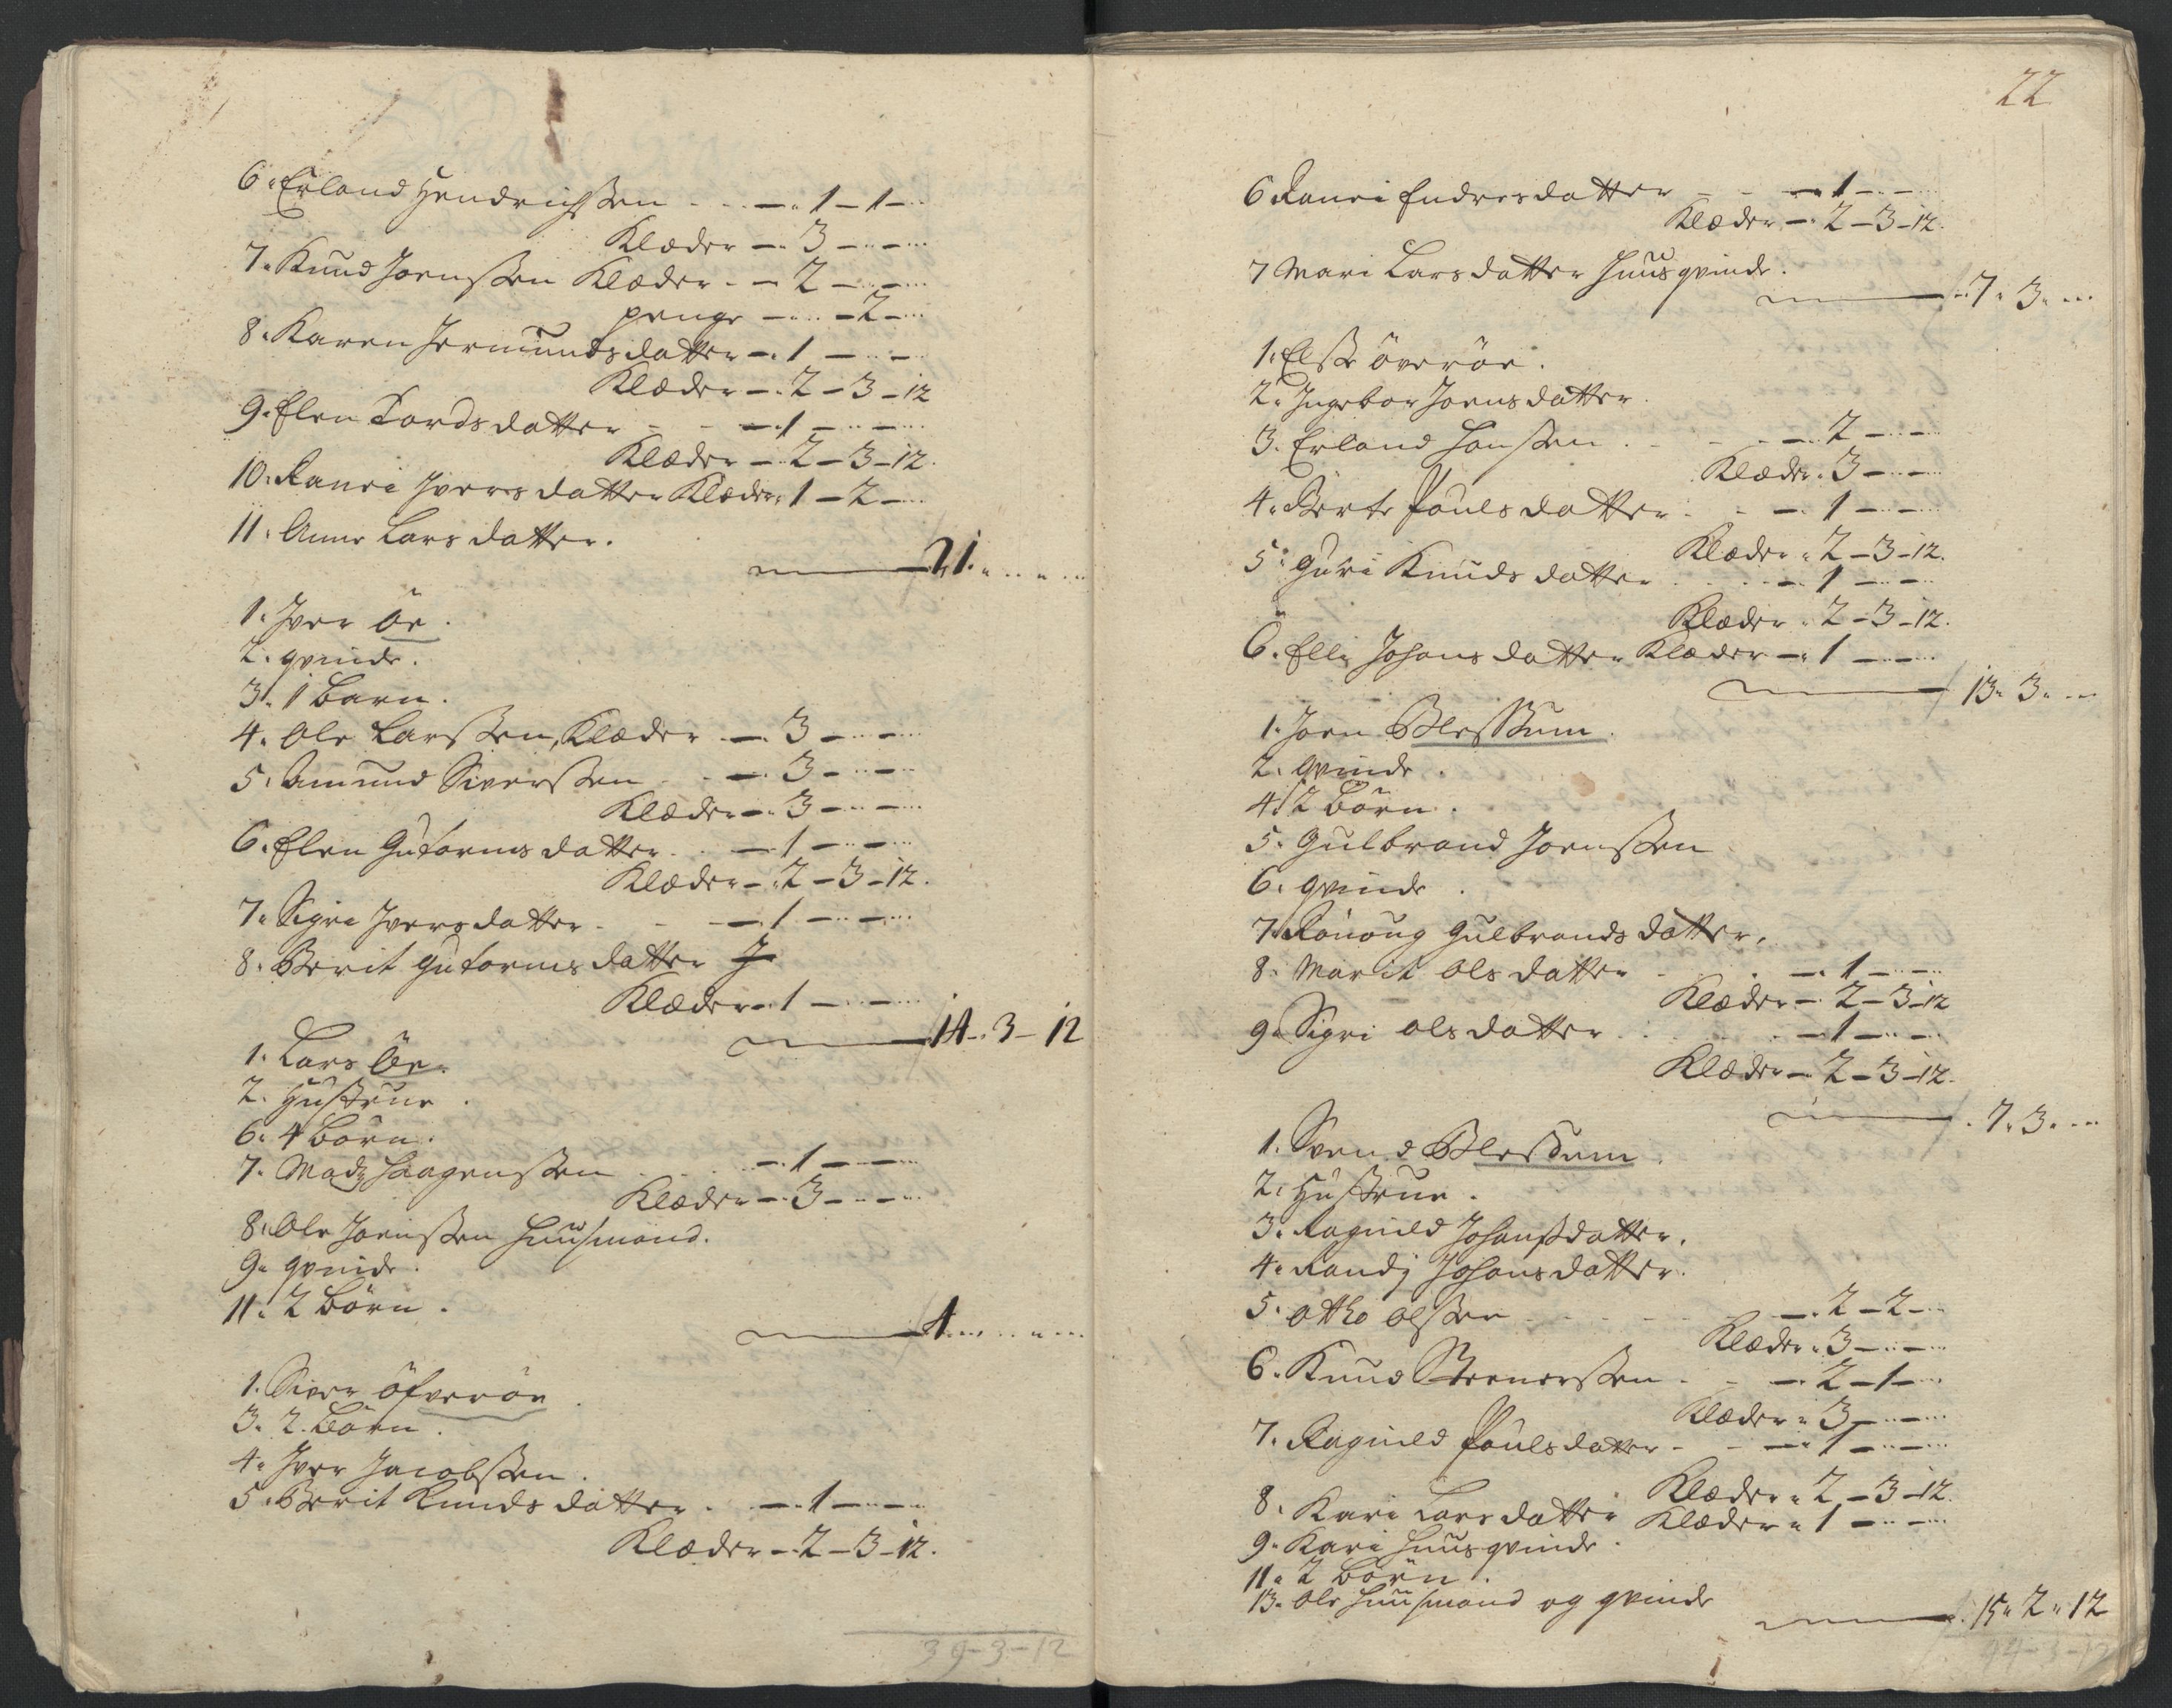 6. Erland Hendrichssen - - - 1 - 1 -
Klæder - 3 - - -
7. Knud Joenssen Klæder - - 2 - - -
penge - - - 2 -
8. Karen Jermundsdatter - 1 - - -
Klæder - 2 - 3 - 12
9. Elen Tordsdatter - - 1 - - -
Klæder - 2 - 3 - 12.
10. Ranei Iversdatter Klæder 1 - 2 -
11. Anne Larsdatter.
21. - -
1. Iver Öe.
2. qvinde.
3. 1 Barn.
4. Ole Larssen, Klæder - 3 - - -
5. Amund Siverssen - - 3 - - -
Klæder - 3 - - -
6. Elen Gutormsdatter - - 1 - - -
Klæder - 2 - 3 - 12.
7. Sigri Iversdatter - - 1 - - -
8. Berit Gutormsdatter
Klæder - 1 - - -
14 - 3 - 12
1. Lars Öe.
2. Hustrue.
6. 4 Börn.
7. Madz Haagenssen - - - 1 - - -
Klæder - 3 - - -
8. Ole Joenssen Huusmand.
9. qvinde.
11. 2 Börn.
4. - -
1. Siver Öfveröe.
3. 2. Börn.
4. Iver Jacobssen.
5. Berit Knudsdatter. - 1 - - -
Klæder - 2 - 3 - 12.
39-3-12
22
6 Ranei Endresdatter - - - 1 - -
Klæder - 2 - 3 - 12.
7 Mari Larsdatter Huusqvinde.
7. 3. -
1. Elsse Överöe.
2. Ingebor Joensdatter.
3. Erland Hanssen. - - - 2 - -
Klæder. 3 - - -
4. Berte Poulsdatter - - 1 - - -
Klæder. 2 - 3 - 12.
5. Guri Knudsdatter - - 1 - - -
Klæder. 2 - 3 - 12.
6. Elli Johansdatter Klæder - 1 - - -
13. 3. -
1. Joen Blessum.
2. qvinde.
4. 2 Börn.
5. Gulbrand Joenssen
6. qvinde.
7. Rönoug Gulbrandsdatter.
8. Marit Olsdatter - - - 1 - - -
Klæder - 2 - 3 - 12
9. Sigri Olsdatter - - - 1 - - -
Klæder - 2 - 3 - 12.
7. 3. -
1. Svend Blessum.
2. Hustrue.
3. Ragnild Johansdatter.
4. Randj Johansdatter.
5. Otho Olssen - - - 2 - 2 -
Klæder. 3 - - -
6. Knud Steenerssen - - 2 - 1 -
Klæder. 3 - - -
7. Ragnild Poulsdatter - - 1 - - -
Klæder. 2 - 3 - 12.
8. Kari Larsdatter Klæder. 1 - - -
9. Kari Huusqvinde.
11. 2 Börn.
13. Ole Huusmand og qvinde
15. 2. 12
44-3-12